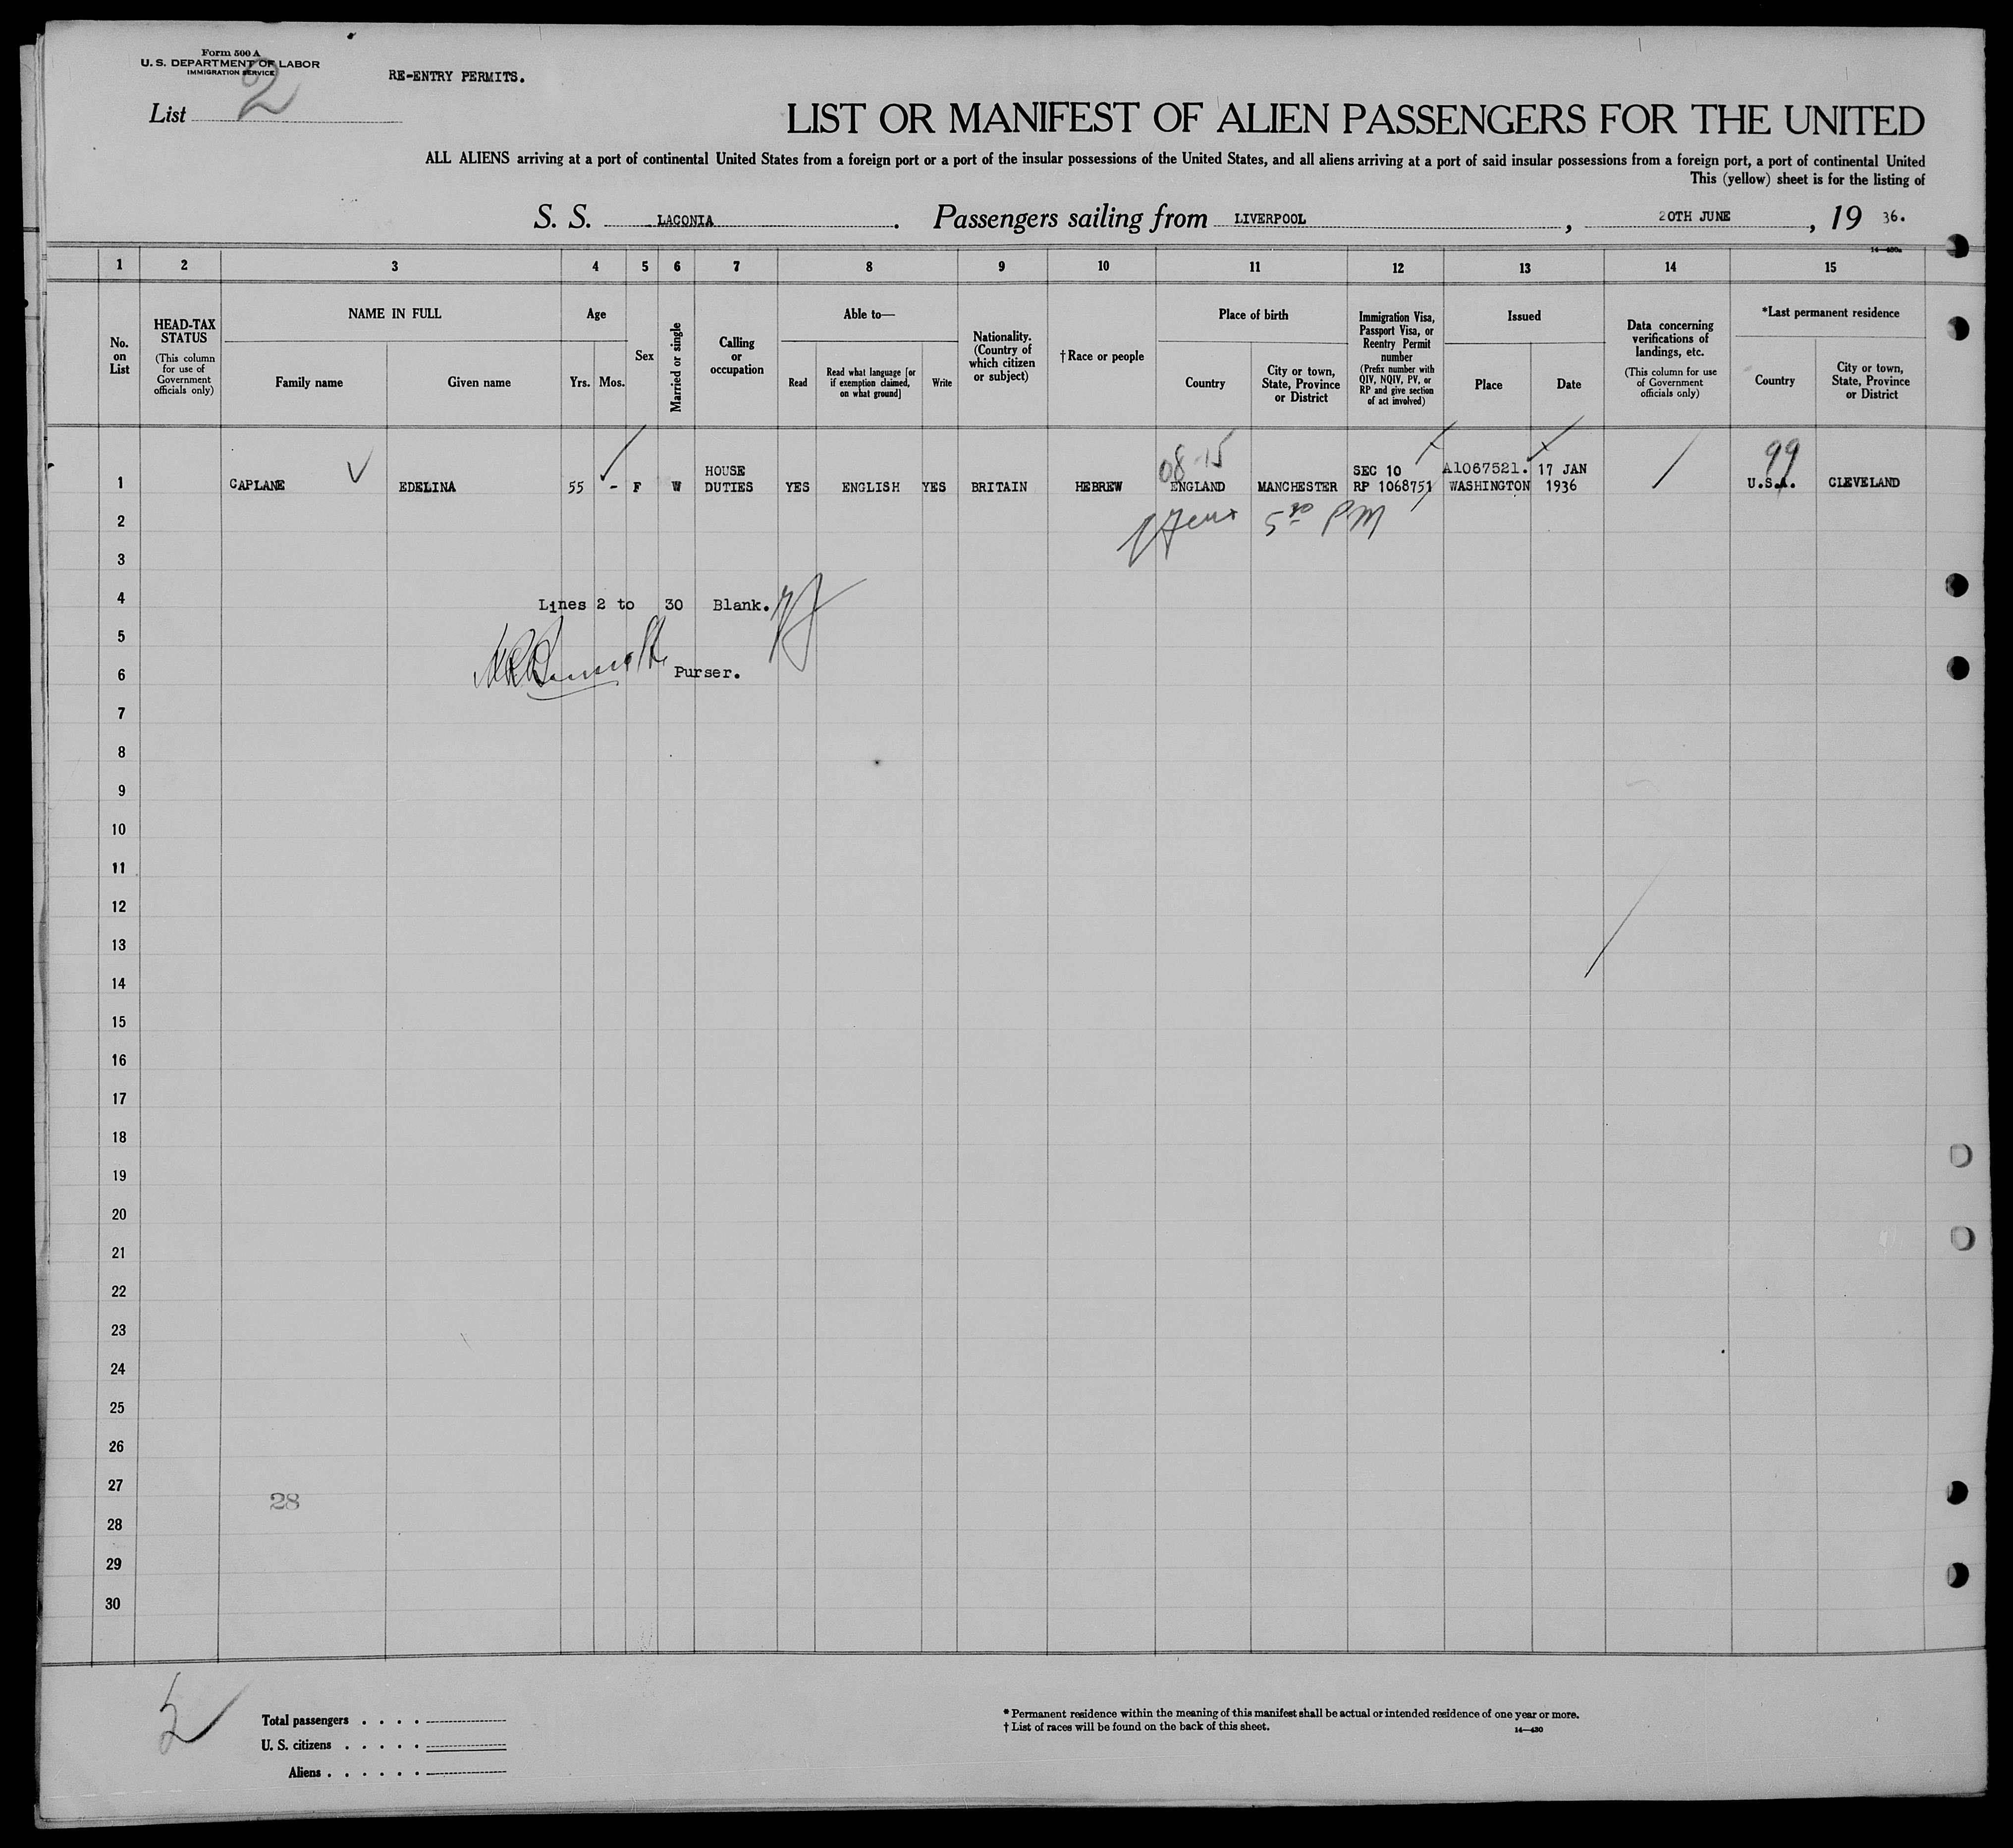 Form 500 A
U. S. DEPARTMENT OF LABOR
IMMIGRATION SERVICE
RE-ENTRY PERMITS.
List 2
LIST OR MANIFEST OF ALIEN PASSENGERS FOR THE UNITED
ALL ALIENS arriving at a port of continental United States from a foreign port or a port of the insular possessions of the United States, and all aliens arriving at a port of said insular possessions from a foreign port, a port of continental United
This (yellow) sheet is for the listing of
S. S. LACONIA. Passengers sailing from LIVERPOOL, 20TH JUNE, 19 36.
14—430a
1 2 3 4 5 6 7 8 9 10 11 12 13 14 15
No. on List
HEAD-TAX STATUS
(This column for use of Government officials only)
NAME IN FULL
Family name
Given name
Age
Yrs.
Mos.
Sex
Married or single
Calling or occupation
Able to—
Read
Read what language [or if exemption claimed, on what ground]
Write
Nationality. (Country of which citizen or subject)
†Race or people
Place of birth
Country
City or town, State, Province or District
Immigration Visa, Passport Visa, or Reentry Permit number
(Prefix number with QIV, NQIV, PV, or RP and give section of act involved)
Issued
Place
Date
Data concerning verifications of landings, etc.
(This column for use of Government officials only)
*Last permanent residence
Country
City or town, State, Province or District
08 15
99
HOUSE SEC 10 A1067521. 17 JAN
1 CAPLANE EDELINA 55 - F W DUTIES YES ENGLISH YES BRITAIN HEBREW ENGLAND MANCHESTER RP 1068751 WASHINGTON 1936 U.S.A. CLEVELAND
2
PM
3
4 Lines 2 to 30 Blank.
5
6 Purser.
7
8
9
10
11
12
13
14
15
16
17
18
19
20
21
22
23
24
25
26
27
28
28
29
30
Total passengers . . . .
U. S. citizens . . . . .
Aliens . . . . . .
* Permanent residence within the meaning of this manifest shall be actual or intended residence of one year or more.
† List of races will be found on the back of this sheet.
14—430